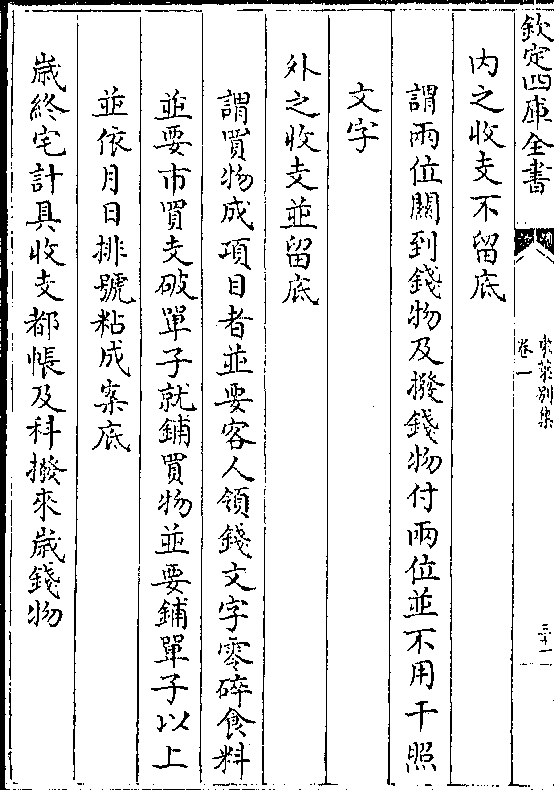 欽定四庫全書
東萊別集
卷一
三十一
內之收支不留底
謂兩位關到錢物及撥錢物付兩位並不用干照
文字
外之收支並留底
謂買物成項目者並要客人領錢文字零碎食料
並要市買支破單子就鋪買物並要鋪單子以上
並依月日排號粘成案底
歲終宅計具收支都帳及科撥來歲錢物